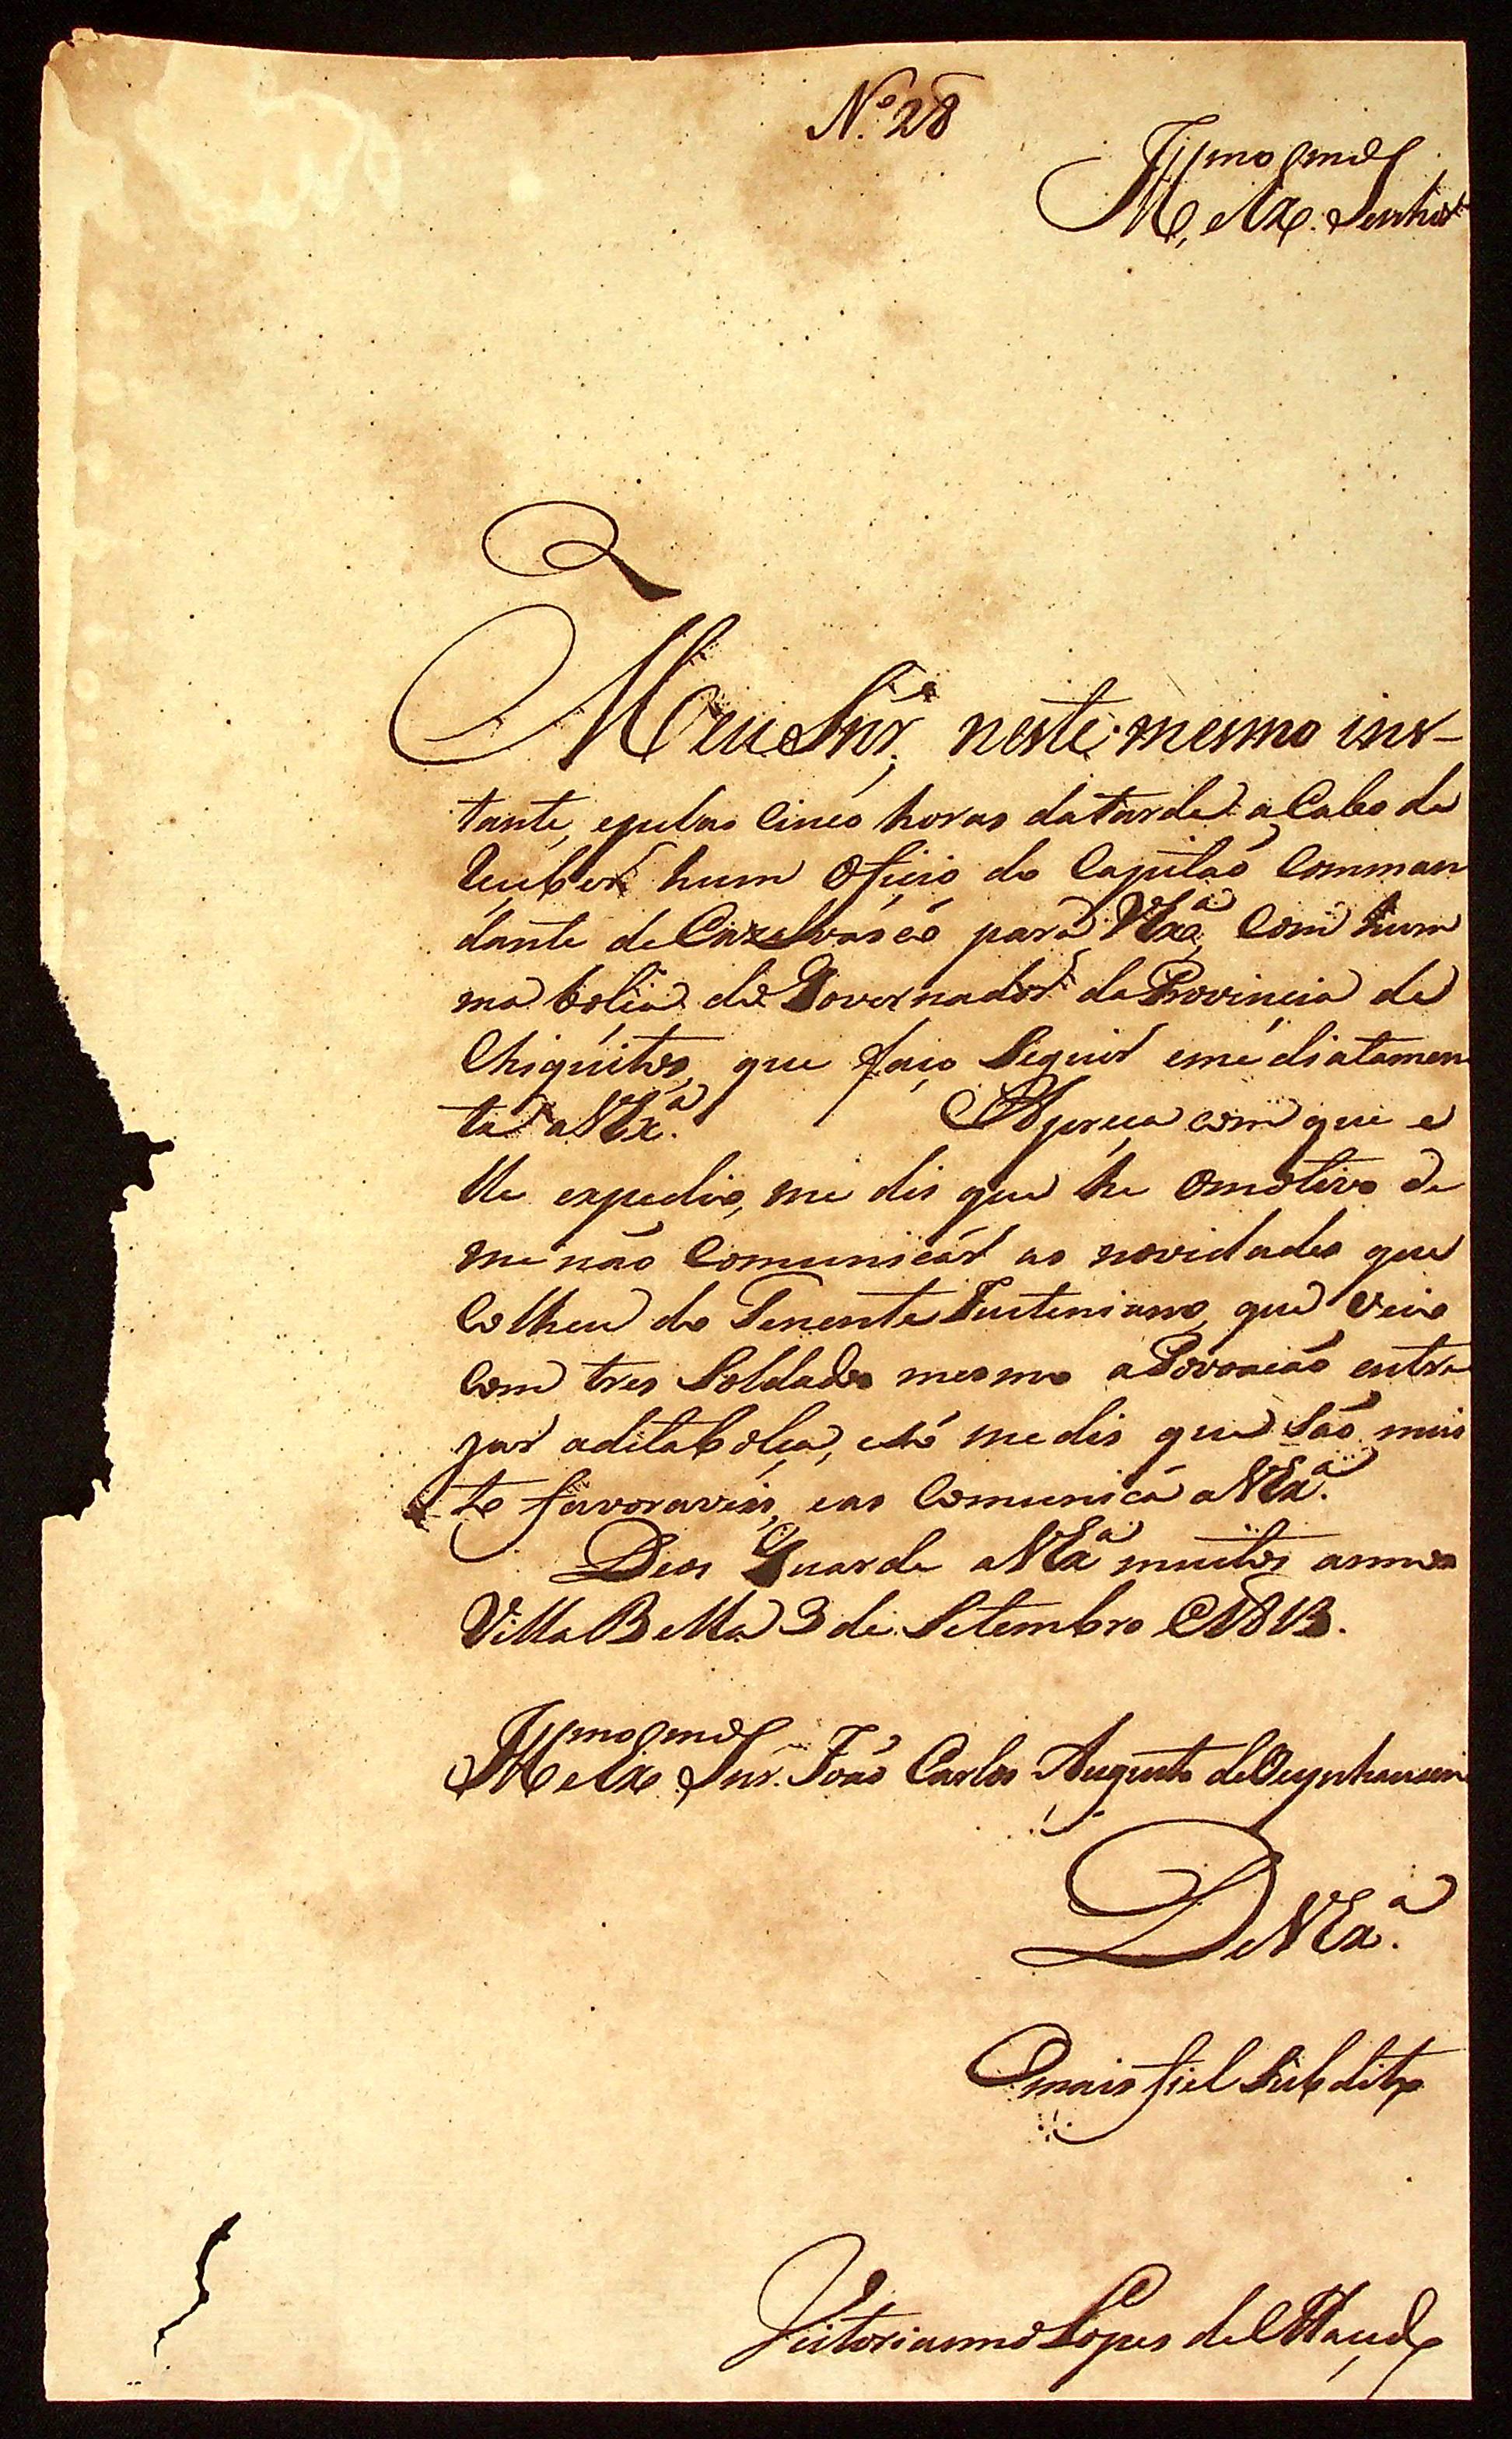 N.º 28
Illmo e Exmo
Senhor
Meu Snr.; neste mesmo ins-
tante, epelas Cinco horas datarde acabo de
receber hum Oficio do Capitaõ Comman
dante de Cazalvasco para VExa, Com hum
ma bolça do Governador da Provincia de
Chiquitos, que faço Seguir emediatamen
te aVExa. Apreça com que e
lle expedio, me dis que he Omotivo de
me não Comunicár as novidades que
Colheu do Tenente Justeniano, que veio
Com tres Soldados mesmo aPovoação entre
gar aditabolça, e só me dis que São mui
to favoraveis, eas Comunica aVExa.
Deos Guarde aVExa muitos annos
Villa Bella 3 de Setembro 1813.
Illmo e Exmo Snr. João Carlos Augusto deOeynhausen
De VExa.
O mais fiel Subdito
Victorianno Lopes de